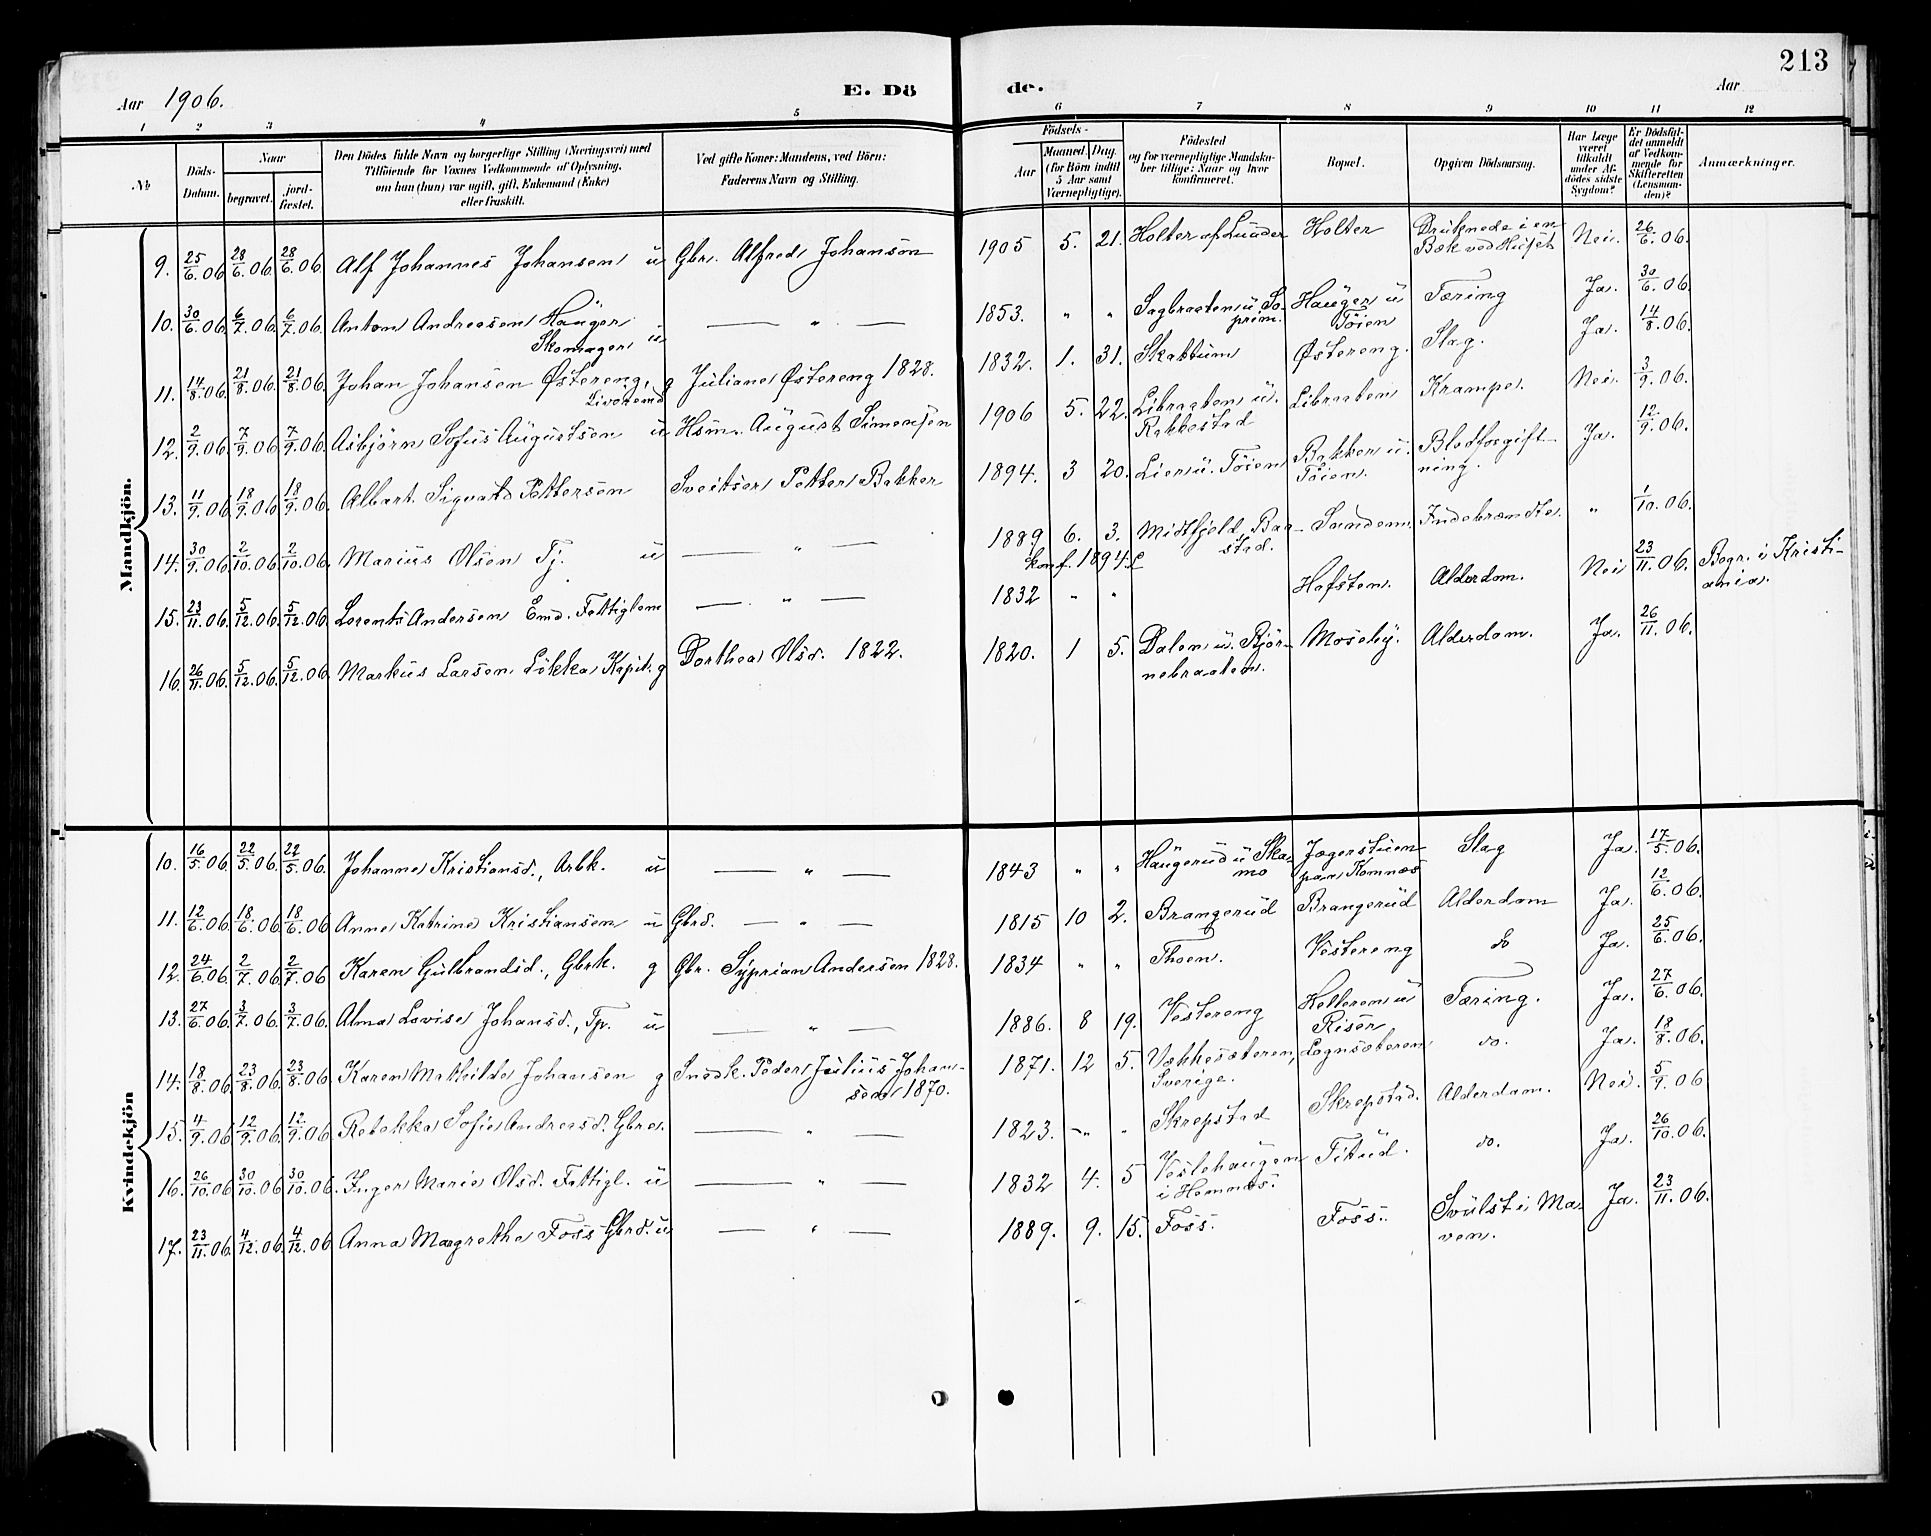 213
Aar 1906.
E. Dö
de.
Aar
1 2 3 4 5 6 7 8 9 10 11 12
No
Döds-Datum.
Naar
begravet.
jord-fæstet.
Den Dödes fulde Navn og borgerlige Stilling (Næringsvei) med
Tilföiende for Voxnes Vedkommende af Oplysning,
om han (hun) var ugift, gift, Enkemand (Enke)
eller fraskilt.
Ved gifte Koner: Mandens, ved Börn:
Faderens Navn og Stilling.
Födsels-
Aar
Maaned. Dag.
(for Börn indtil
5 Aar samt
Værnepligtige).
Födested
og for værnepligtige Mandska-
ber tillige: Naar og hvor
konfirmeret.
Bopæl.
Opgiven Dödsaarsag.
Har Læge
været
tilkaldt
under Af-
dödes sidste
Sygdom?
Er Dödsfal-
det anmeldt
af Vedkom-
mende for
Skifteretten
(Lensman-
den)?
Anmærkninger.
Mandkjön.
9. 25/6.06 28/6.06. 28/6.06. Alf Johannes Johansen u Gbr. Alfred Johanson 1905 5. 21. Holter af Lunder Holter Druknede i en Nei. 26/6.06.
Bæk ved Huset
10. 30/6.06. 6/7.06. 6/7.06. Anton Andreasen Hauger — " — 1853. " " Sagbraaten u. So- Hauger u Tæring Ja. 30/6.06.
Skomager u prim. Töien
11. 14/8.06. 21/8.06. 21/8.06. Johan Johansen Östereng, g Juliane Östereng 1828. 1832. 1. 31. Skattum Östereng. Slag. Ja. 14/8.06.
Livöremd
12. 2/9.06. 7/9.06. 7/9.06. Asbjörn Sofus Augustsen u Hsm. August Simensen 1906 5. 22. Libraaten u. Libraaten Krampe. Nei. 3/9.06.
Rakkestad
13. 11/9.06. 18/9.06. 18/9.06. Albart Sigvald Pettersen Sveitser Petter Bakker 1894. 3 20. Lier u. Töien Bakker u. Blodforgift- Ja. 12/9.06.
Töien. ning.
14. 30/9.06. 2/10.06. 2/10.06. Marius Olsen Tj. u — " — 1889 6. 3. Midtfjeld, Baa- Sundem. Indebrændte. " 1/10.06.
konf. 1894. stad.
15. 23/11.06. 5/12.06. 5/12.06. Lorents Andersen Emd. Fattiglem — " — 1832 " " Hofsten. Alderdom. Nei 23/11.06. Begr. i Kristi-
ania.
16. 26/11.06. 5/12.06. 5/12.06. Markus Larsen Lökka Kapit. g Dorthea Olsd. 1822. 1820. 1 5. Dalen u. Björ- Moseby. Alderdom. Ja. 26/11.06.
nebraaten.
Kvindekjön
10. 16/5.06. 22/5.06. 22/5.06. Johanne Kristiansd., Arbk. u — " — 1843 " " Haugerud u Ska- Jægerstuen Slag Ja. 17/5.06.
mo paa Komnæs
11. 12/6.06. 18/6.06. 18/6.06 Anne Katrine Kristiansen u Gbrd. — " — 1815 10 2. Brangerud Brangerud Alderdom Ja. 12/6.06.
12. 24/6.06. 2/7.06. 2/7.06 Karen Gulbrandsd., Gbrk. g Gbr. Syprian Andersen 1828. 1834 " " Thoen. Vestereng do Ja. 25/6.06.
13. 27/6.06. 3/7.06. 3/7.06. Alma Lovise Johansd., Tp. u — " — 1886. 8 19. Vestereng Hellerem u Tæring. Ja. 27/6.06.
Risör
14. 18/8.06. 23/8.06. 23/8.06. Karen Mathilde Johansen g Snedk. Peder Julius Johan- 1871. 12 5. Vakkesæteren, Lognsæteren do. Ja. 18/8.06.
sen 1870. Sverige.
15. 4/9.06 12/9.06. 12/9.06. Rebekka Sofie Andreasd. Gbre. — " — 1823. " " Skrepstad Skrepstad. Alderdom. Nei. 5/9.06
16. 26/10.06 30/10.06 30/10.06. Inger Marie Olsd. Fattigl. u — " — 1832 4. 5 Veslehaugen Titud. do. Ja. 26/10.06.
i Hemnæs.
17. 23/11.06. 4/12.06. 4/12.06. Anna Margrethe Foss Gbrd. u — " — 1889. 9. 15. Foss. Foss. Svulst i Ma- Ja. 23/11.06.
ven.